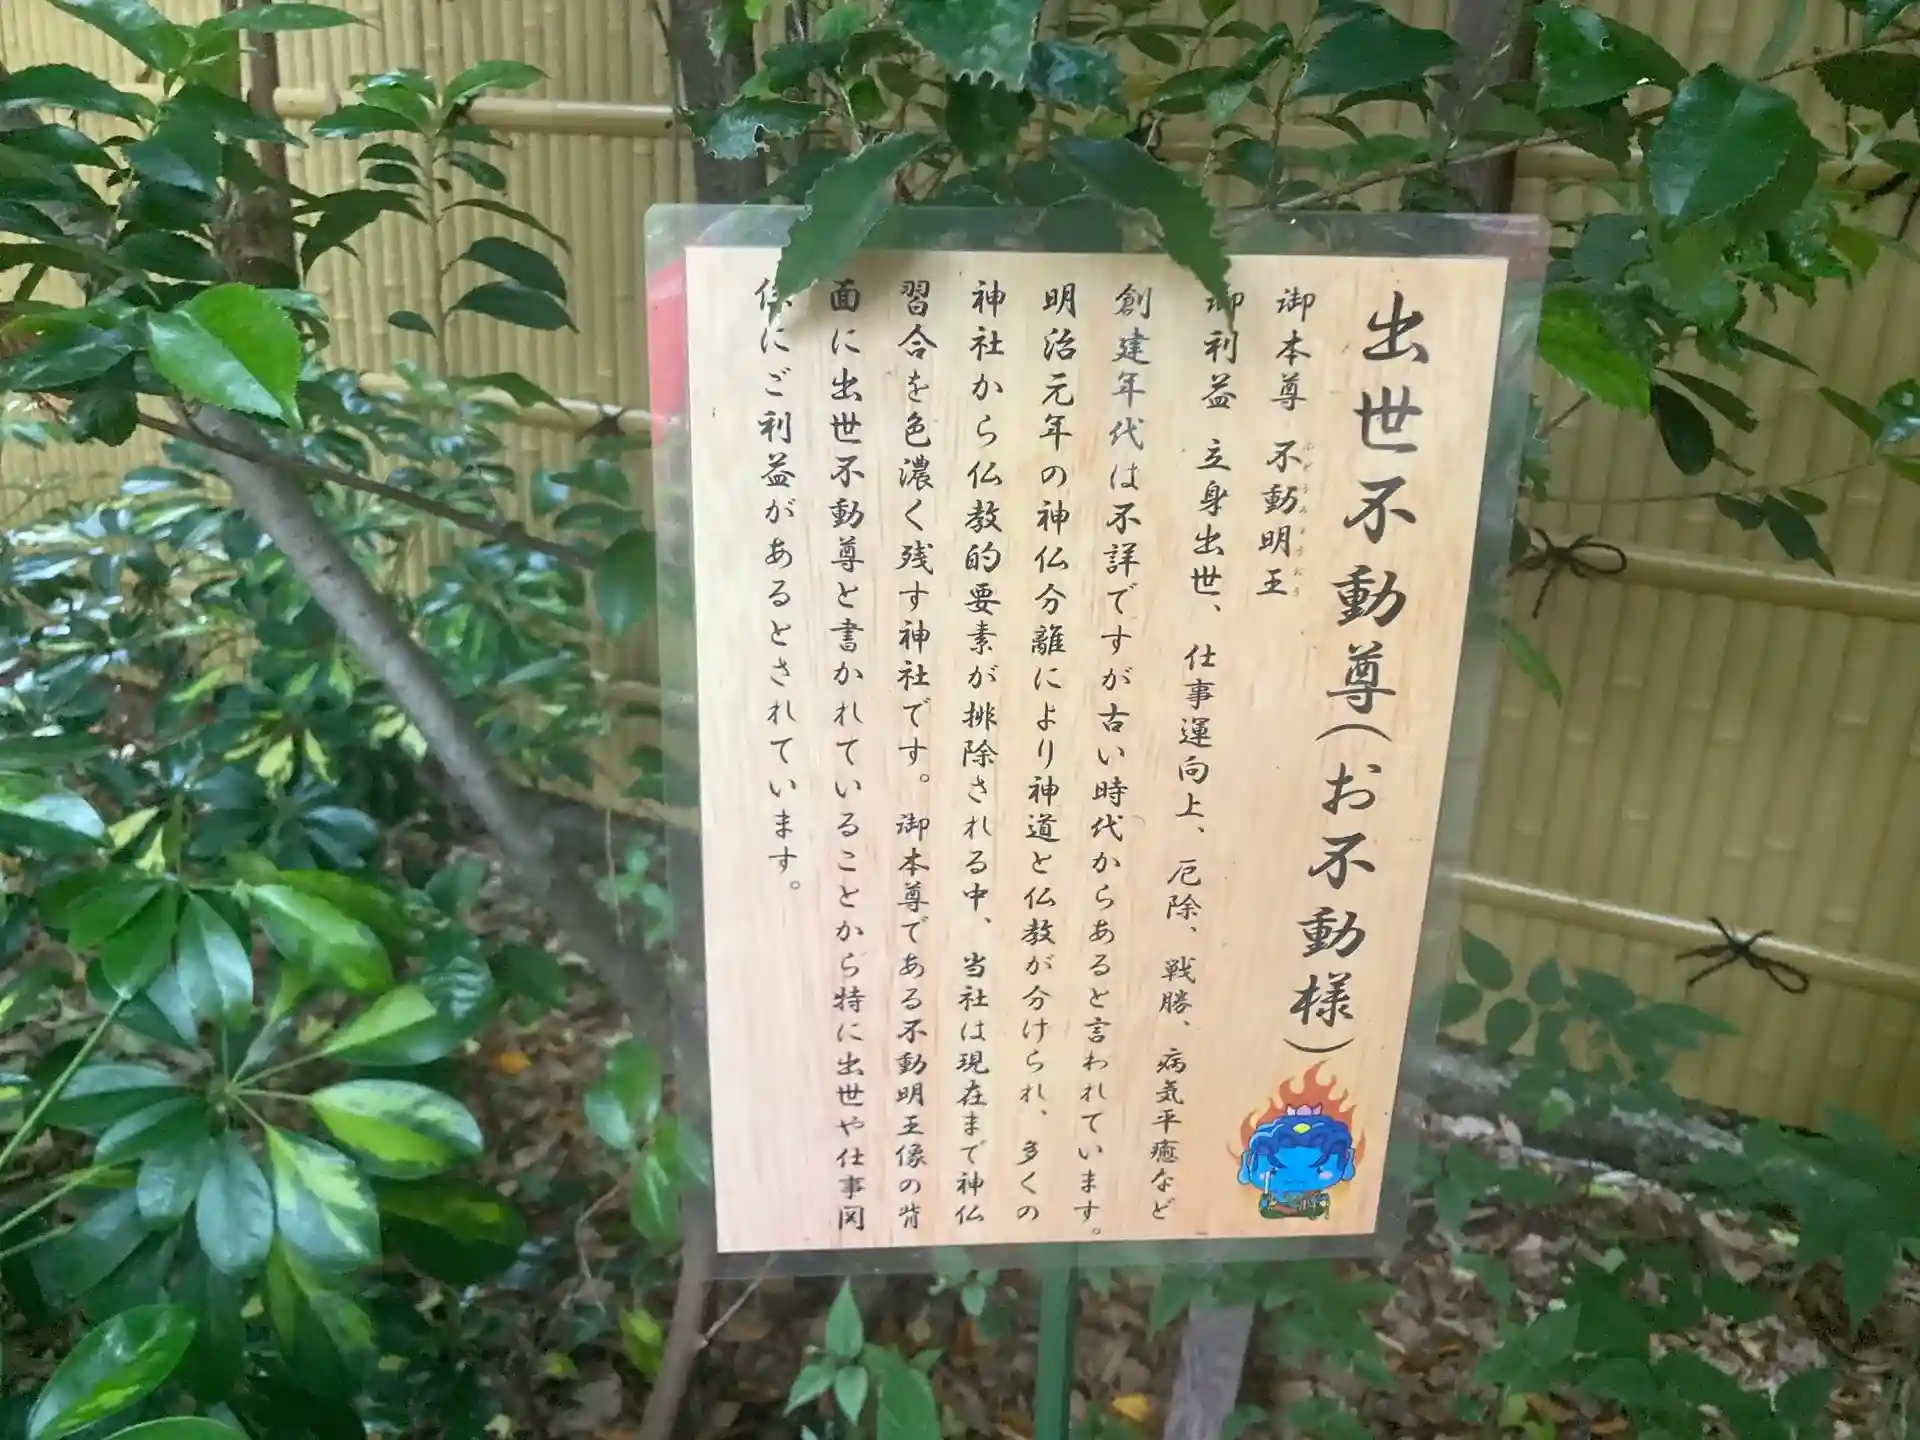 出世不動尊(お不動様)
御本尊 不動明王
ふどうみょうおう
御利益 立身出世、仕事運向上、厄除、戦勝、病気平癒など
創建年代は不詳ですが古い時代からあると言われています。
明治元年の神仏分離により神道と仏教が分けられ、多くの
神社から仏教的要素が排除される中、当社は現在まで神仏
習合を色濃く残す神社です。御本尊である不動明王像の背
面に出世不動尊と書かれていることから特に出世や仕事関
係にご利益があるとされています。